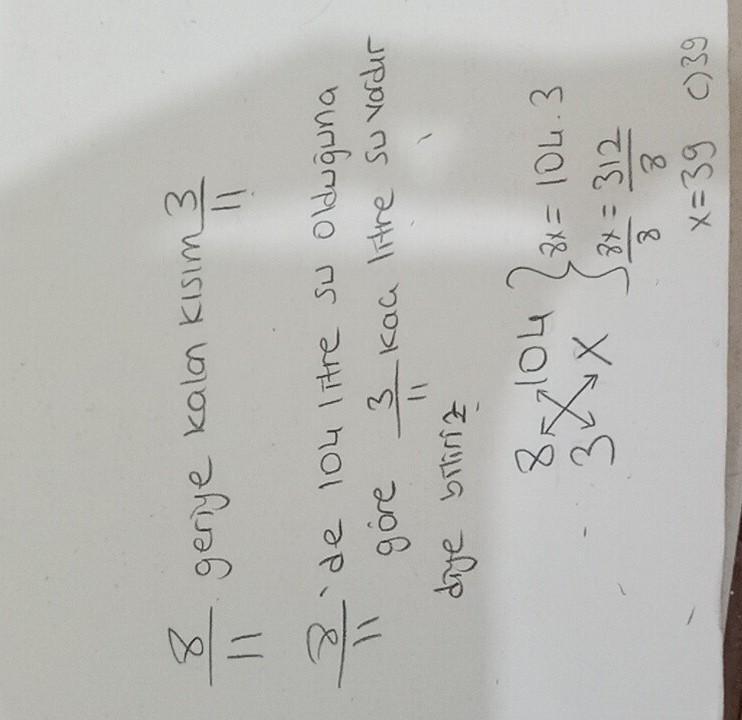 8/11 geriye kalan kısım 3/11
8/11 'de 104 litre su olduğuna
göre 3/11 kaç litre su vardır
diye biliriz
8 104 } 8x = 104.3
3 x } 8x/8 = 312/8
x=39 c)39